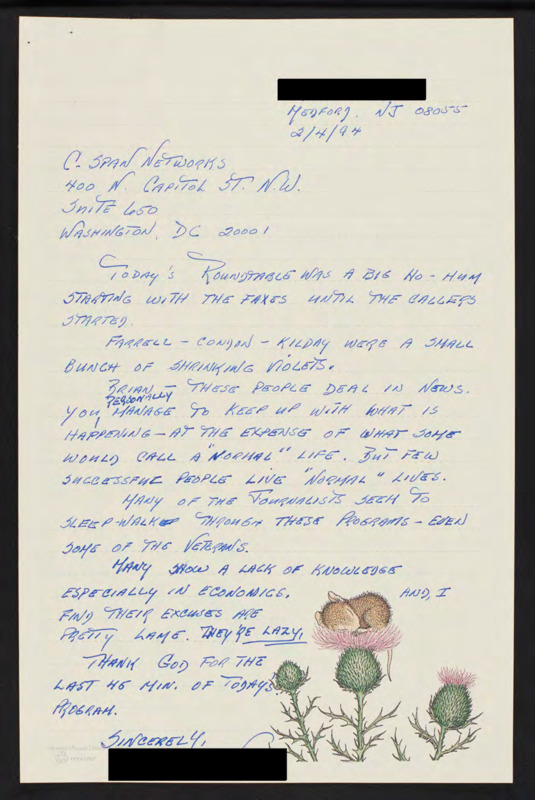 MEDFORD, NJ 08055
2/4/94
C-SPAN NETWORKS
400 N. CAPITOL ST. N.W.
SUITE 650
WASHINGTON, DC 20001
TODAY'S ROUNDTABLE WAS A BIG HO-HUM
STARTING WITH THE FAXES UNTIL THE CALLERS
STARTED.
FARRELL - CONDON - KILDAY WERE A SMALL
BUNCH OF SHRINKING VIOLETS.
BRIAN - THESE PEOPLE DEAL IN NEWS.
YOU PERSONALLY MANAGE TO KEEP UP WITH WHAT IS
HAPPENING - AT THE EXPENSE OF WHAT SOME
WOULD CALL A "NORMAL" LIFE. BUT FEW
SUCCESSFUL PEOPLE LIVE "NORMAL" LIVES.
MANY OF THE JOURNALISTS SEEM TO
SLEEP-WALK THROUGH THESE PROGRAMS - EVEN
SOME OF THE VETERANS.
MANY SHOW A LACK OF KNOWLEDGE
ESPECIALLY IN ECONOMICS. AND, I
FIND THEIR EXCUSES ARE
PRETTY LAME. THEY'RE LAZY,
THANK GOD FOR THE
LAST 46 MIN. OF TODAY'S
PROGRAM.
SINCERELY,